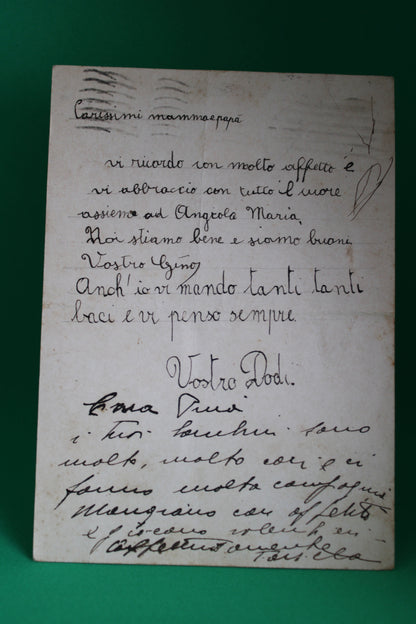 Carissimi mamma e papà
vi ricordo con molto affetto e
vi abbraccio con tutto il cuore
assieme ad Angiola Maria,
Noi stiamo bene e siamo buoni
Vostro Gino
Anch' io vi mando tanti tanti
baci e vi penso sempre.
Vostro Dodi.
Cara Pina
i tuoi bambini sono
molto, molto cari e ci
fanno molta compagnia
Mangiano con appetito
e giocano volentieri
affettuosamente